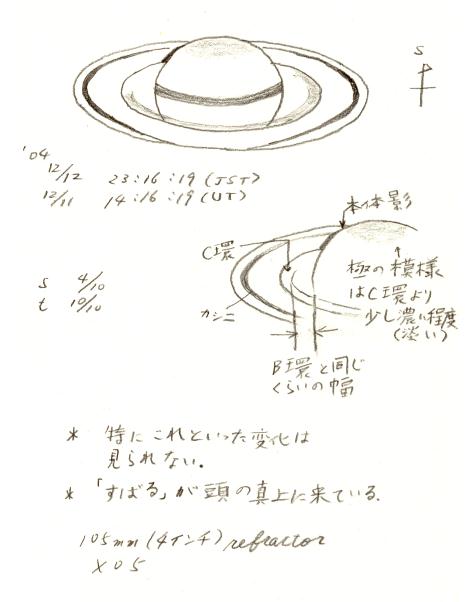 S
'04
12/12 23:16:19 (JST)
12/11 14:16:19 (UT)
本体影
C環
極の模様
はC環より
少し濃い程度
(淡い)
s 4/10
t 10/10
カシニ
B環と同じ
くらいの幅
* 特にこれといった変化は
見られない.
* 「すばる」が頭の真上に来ている.
105mm (4インチ) refractor